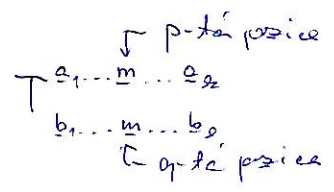 p-tá pozice
T a₁...m...a₂
b₁...m...bℓ
q-tá pozice